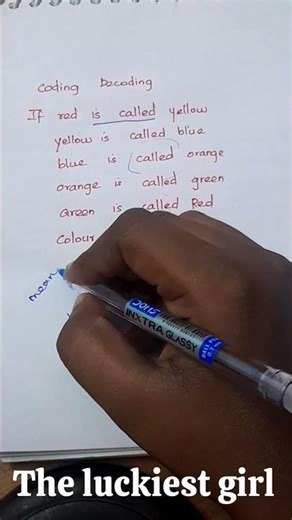 Coding Decoding
If red is called yellow
yellow is called blue
blue is called orange
orange is called green
Green is called Red
Colour
mean
INXTRA GLASSY
The luckiest girl